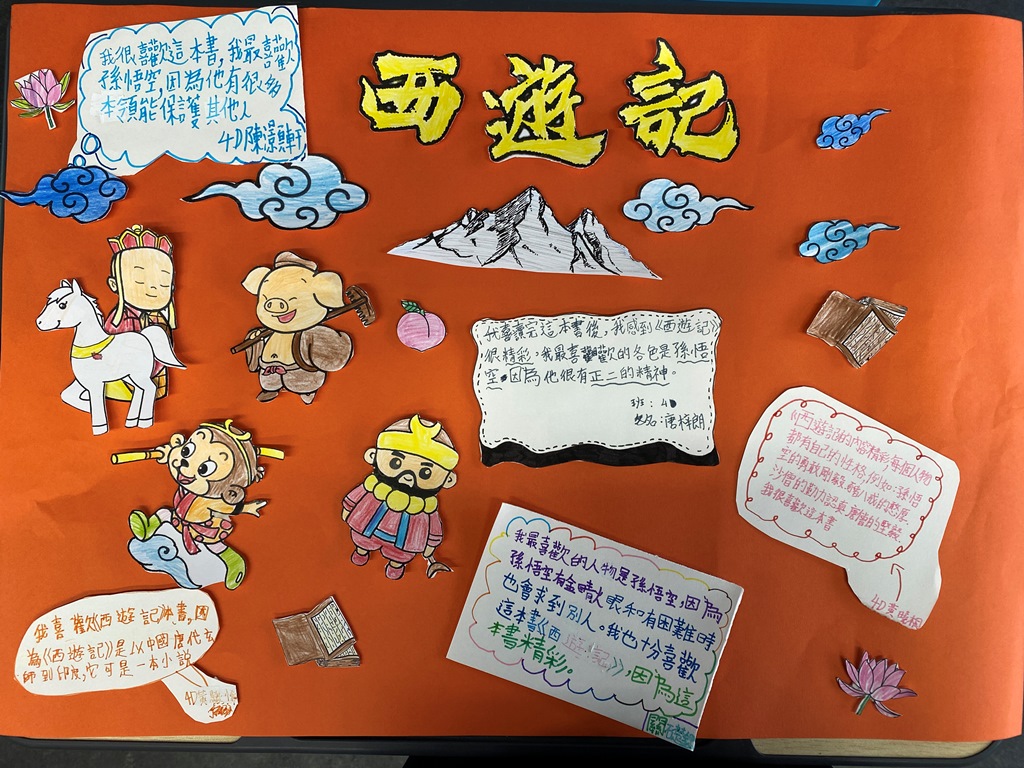 西遊記
我很喜歡這本書,我最喜歡
孫悟空,因為他有很多
本領能保護其他人
4D陳灝軒
我喜讀完這本書後,我感到《西遊記》
很精彩,我最喜歡的各色是孫悟
空,因為他很有正二的精神。
班:4D
名名:唐梓朗
《西遊記的內容精彩每個人物
都有自己的性格,例如:孫悟
空的勇敢剛毅,豬八戒的憨厚.
沙僧的勤力認真唐僧的堅毅.
我很喜歡這本書
4D黃曉桐
我最喜歡的人物是孫悟空,因為
孫悟空有金睛火眼和有困難時
也會求到別人。我也十分喜歡
這本書《西遊記》,因為這
本書精彩。
我喜歡《西遊記》本書,因
為《西遊記》是以中國唐代玄
師到印度,它可是一本小說
4D黃